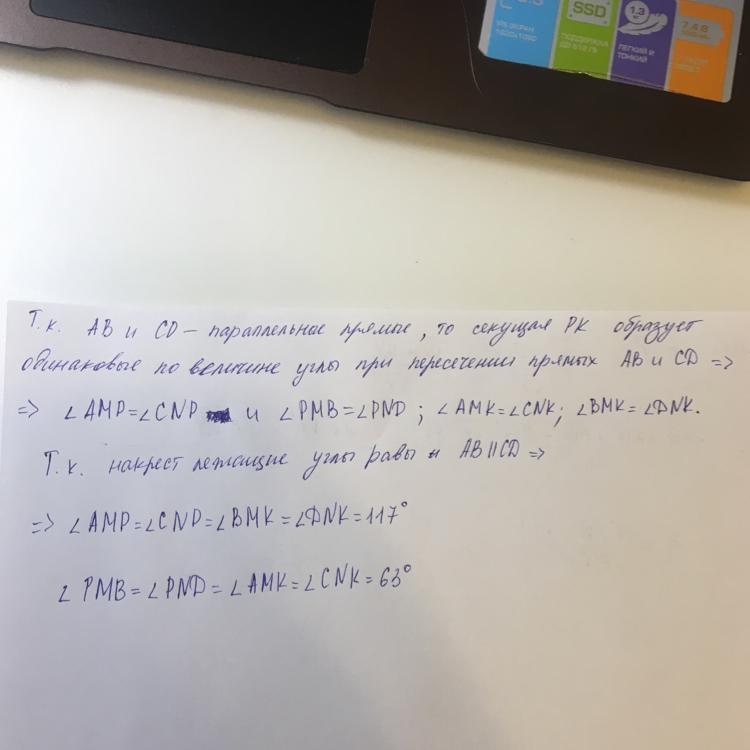 SSD
ПОДДЕРЖКА
ДО 512 ГБ
1.3
ЛЕГКИЙ И
ТОНКИЙ
7.4 В
Т.к. AB и CD – параллельные прямые, то секущая PK образует
одинаковые по величине углы при пересечении прямых AB и CD =>
=> ∠AMP=∠CNP и ∠PMB=∠PND; ∠AMK=∠CNK; ∠BMK=∠DNK.
Т.к. накрест лежащие углы равы и AB||CD =>
=> ∠AMP=∠CNP=∠BMK=∠DNK=117°
∠PMB=∠PND=∠AMK=∠CNK=63°